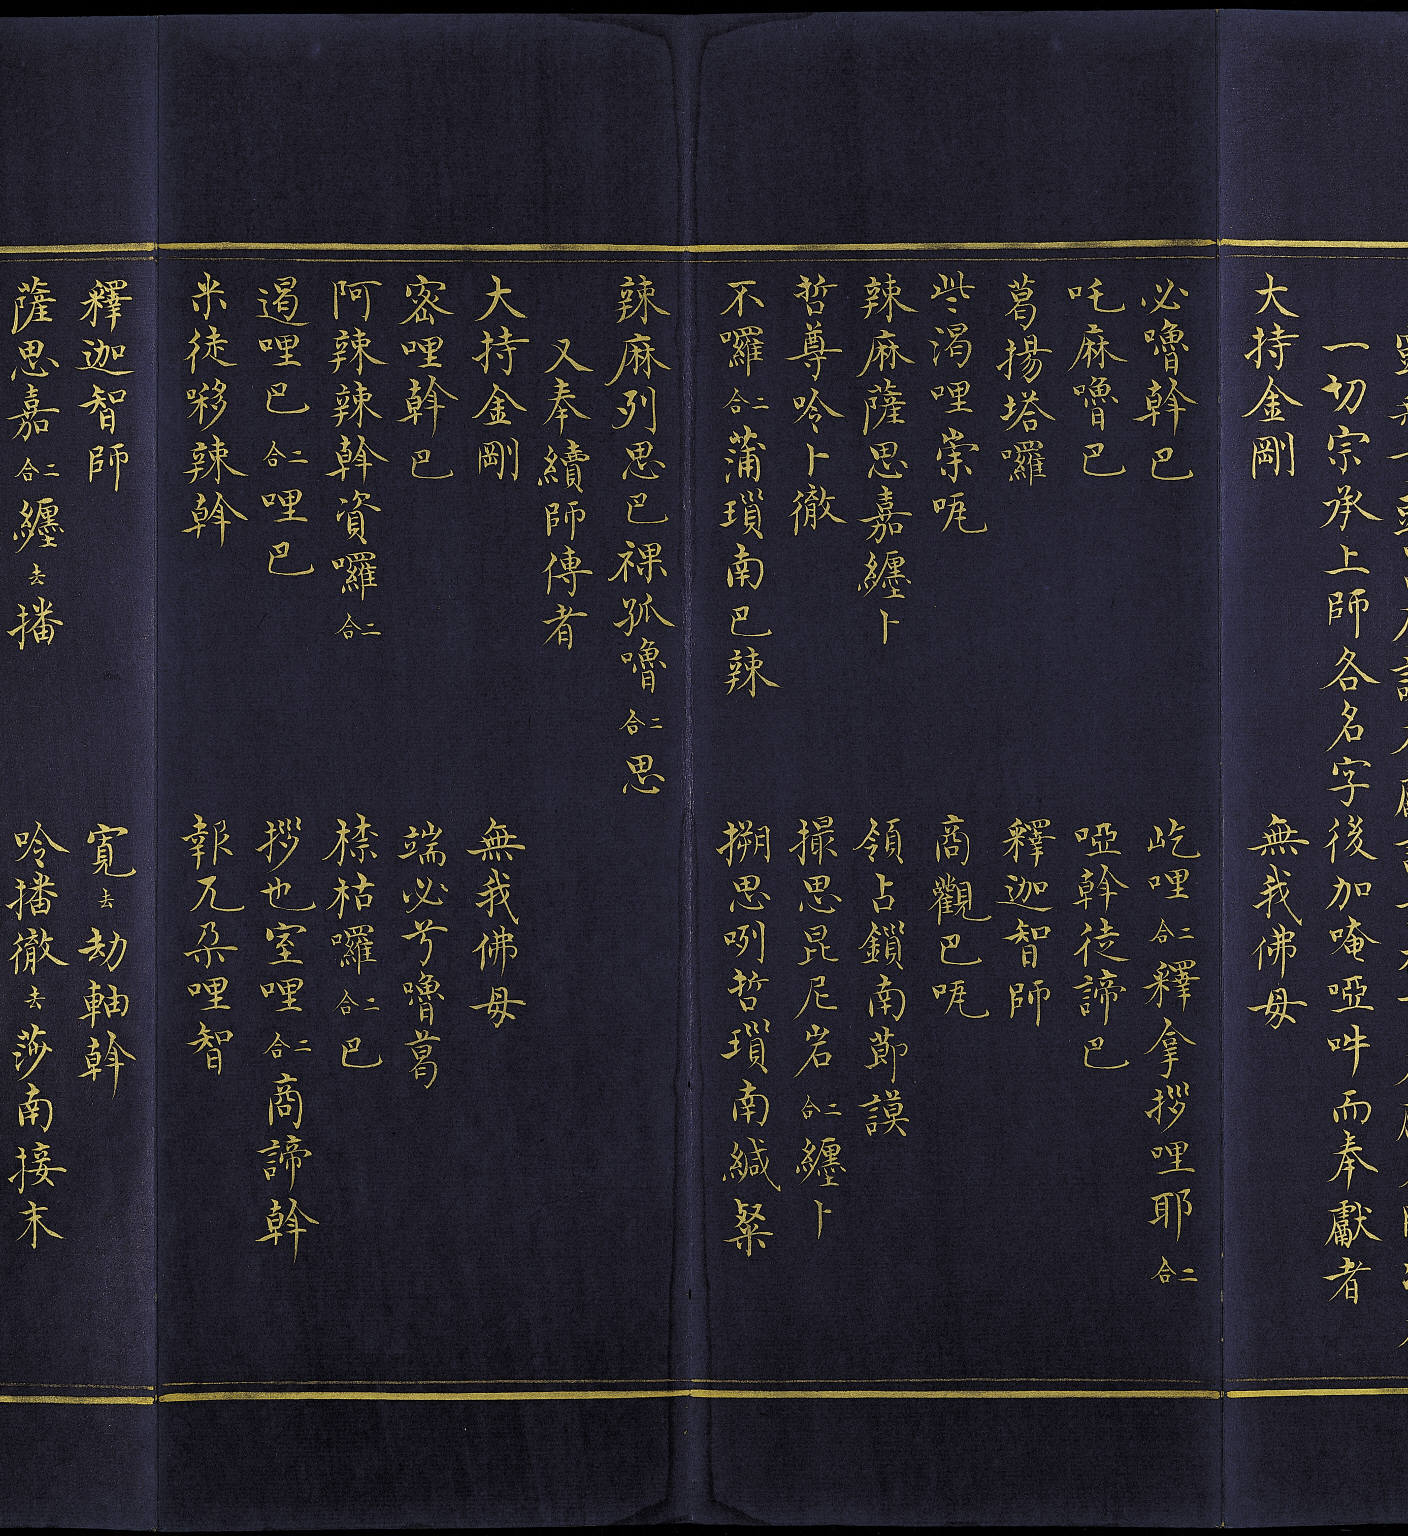 一切宗承上師各名字後加唵啞吽而奉獻者
大持金剛　無我佛母
必嚕斡巴　屹哩二合釋拿拶哩耶二合
吒麻嚕巴　啞斡徒諦巴
葛揚塔囉　釋迦智師
渴哩崇㖇　商觀巴㖇
辣麻薩思嘉纏卜　領占鎖南節謨
哲尊呤卜徹　撮思昆尼岩二合纏卜
不囉二合蒲瑣南巴辣　搠思咧哲瑣南緘粲
辣麻列思巴祼孤嚕二合思
又奉續師傳者
大持金剛　無我佛母
密哩斡巴　端必兮嚕葛
阿辣辣斡資囉二合　榃枯囉二合巴
遏哩巴二合哩巴　拶也室哩二合商諦斡
米徒㗚辣斡　報兀朶哩智
釋迦智師　寬去劫軸斡
薩思嘉二合纏去播　呤播徹去莎南接末